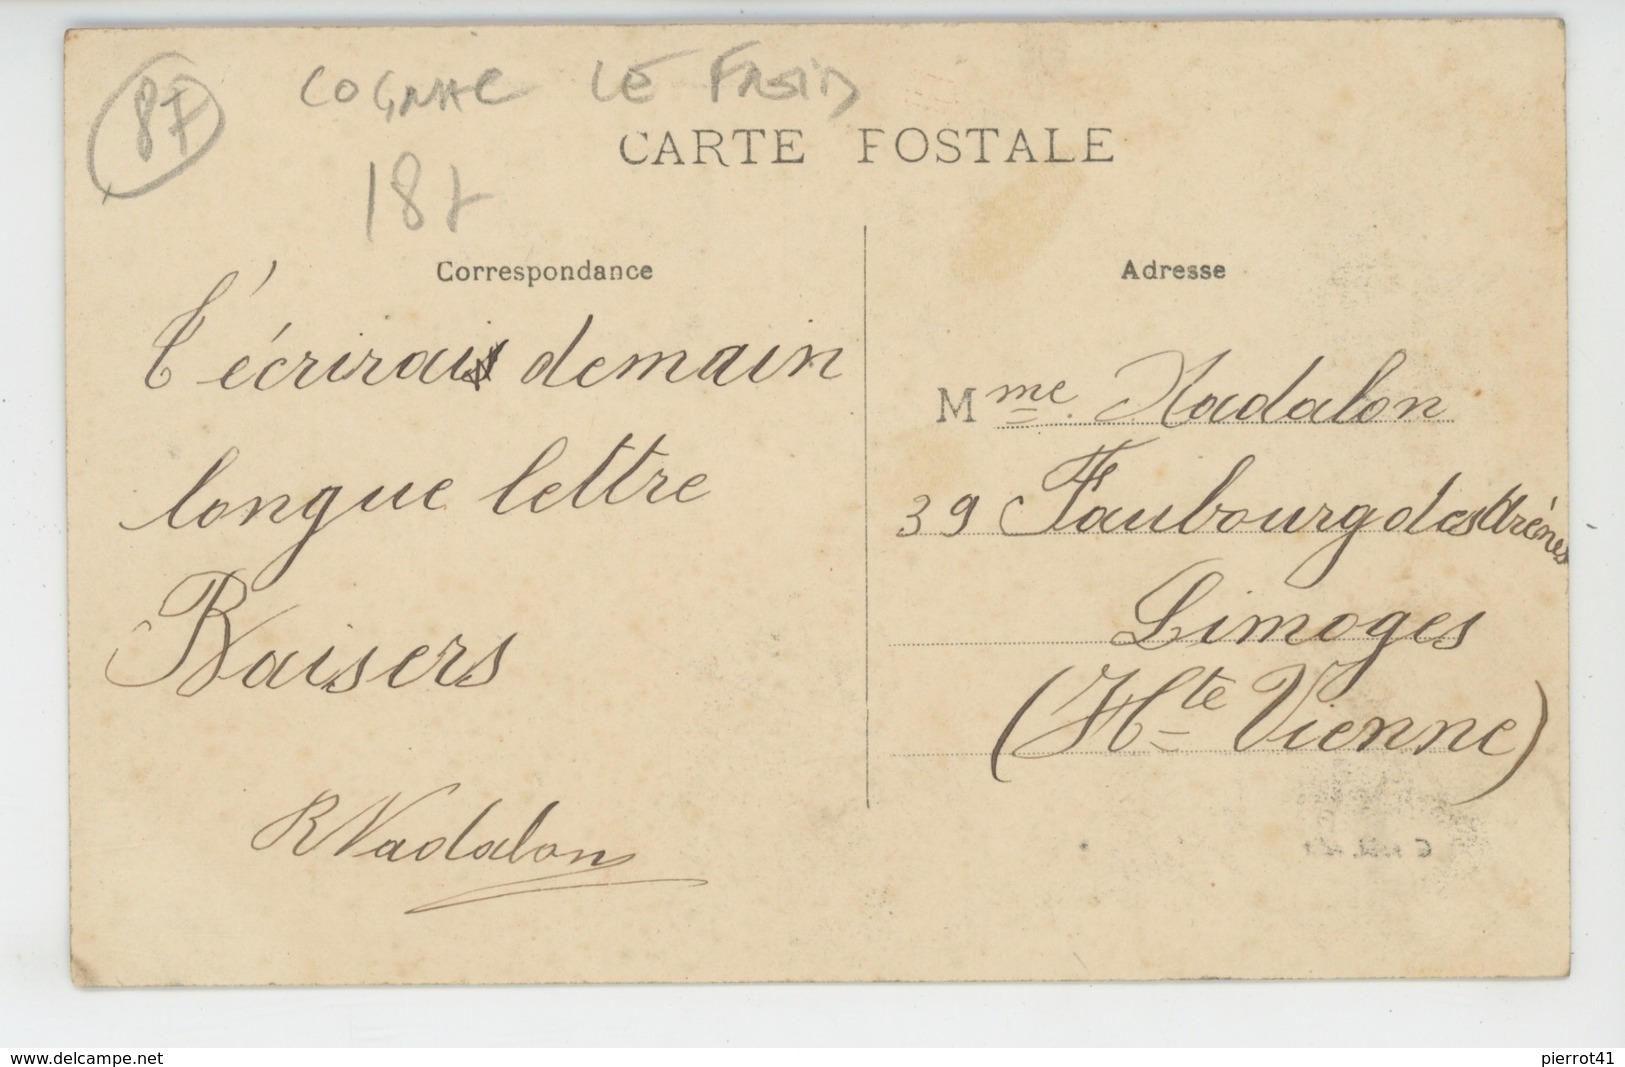 87
COGNAC LE FROID
CARTE POSTALE
Correspondance
T'écrirai demain
longue lettre
Baisers
R Nadalon
Adresse
Mme. Nadalon
39 Faubourg des Arènes
Limoges
(Hte Vienne)
www.delcampe.net
pierrot41